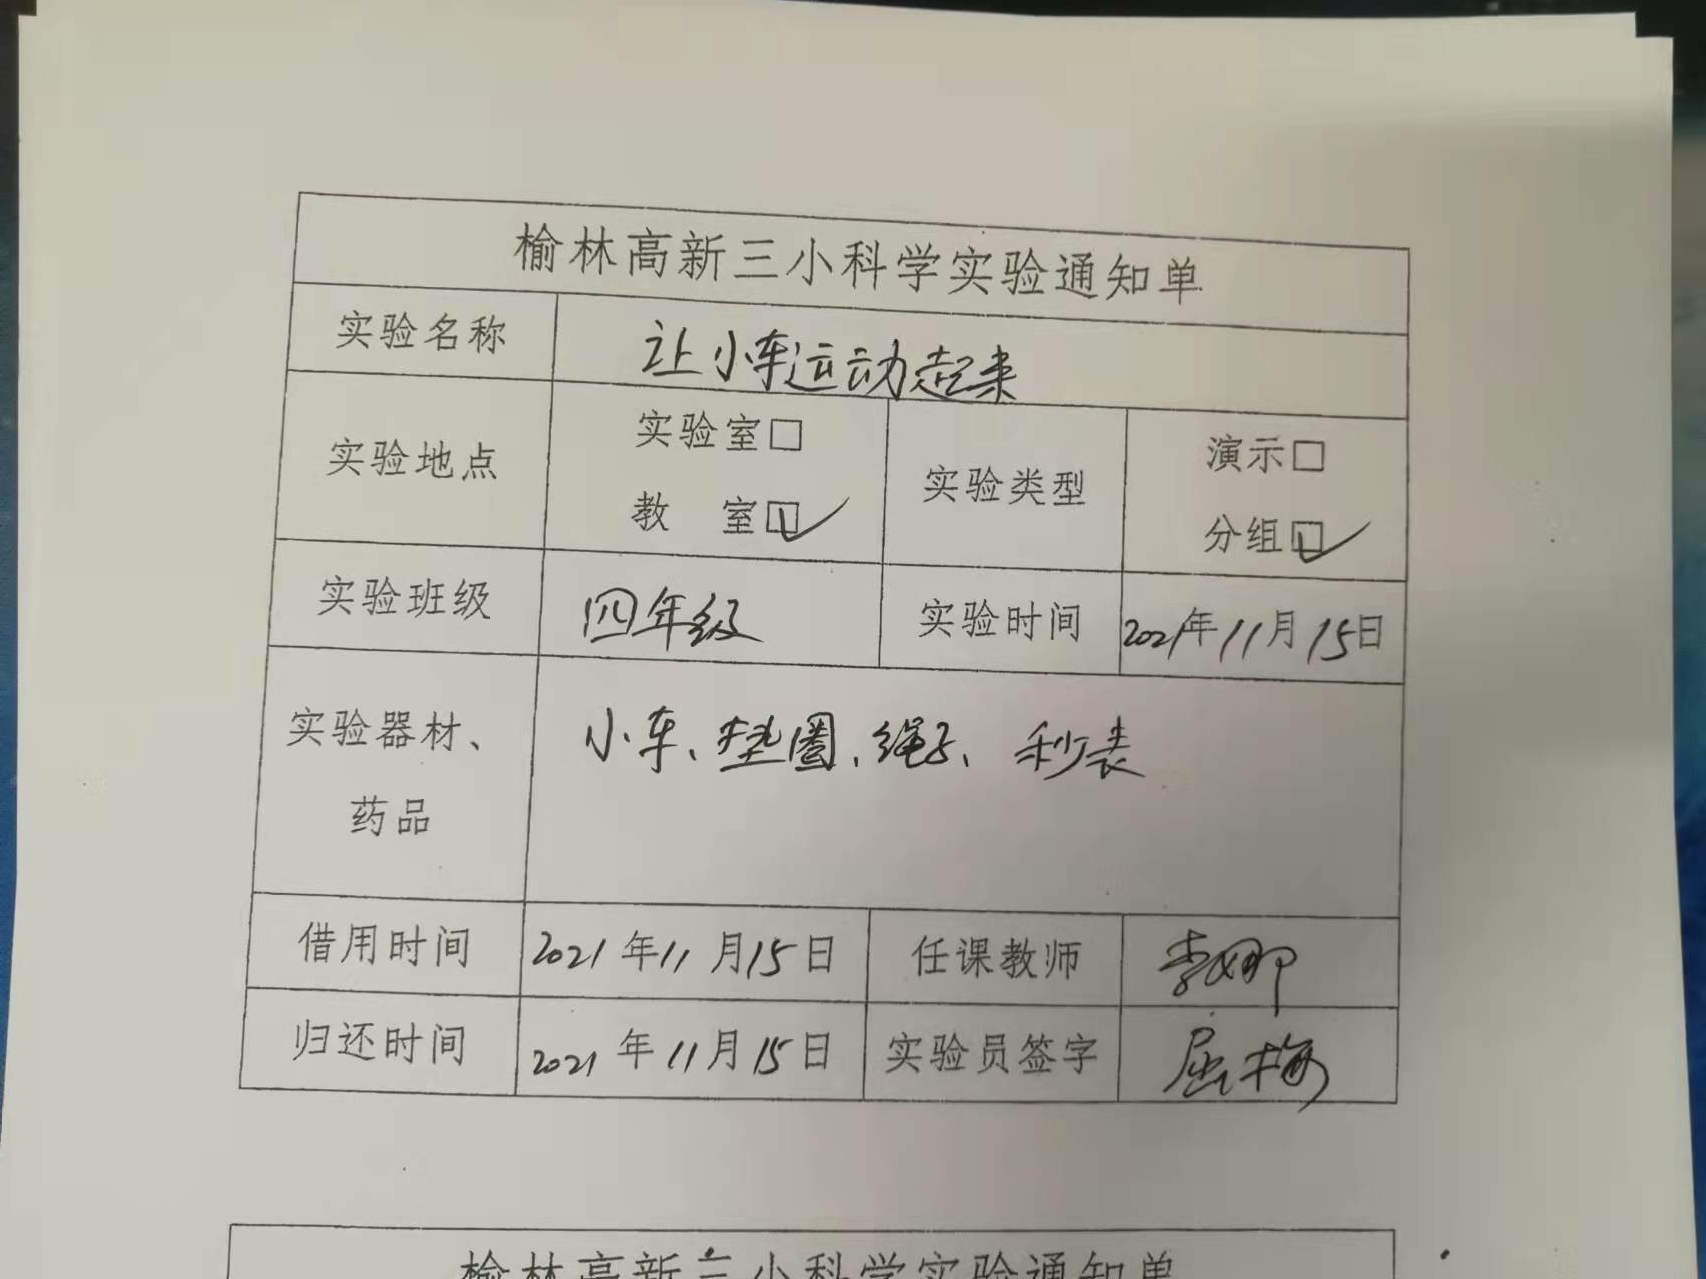 榆林高新三小科学实验通知单
实验名称 让小车运动起来
实验地点 实验室□ 教 室☑ 实验类型 演示□ 分组☑
实验班级 四年级 实验时间 2021年11月15日
实验器材、药品 小车、垫圈、绳子、秒表
借用时间 2021年11月15日 任课教师 李娜
归还时间 2021年11月15日 实验员签字 屈梅
榆林高新三小科学实验通知单